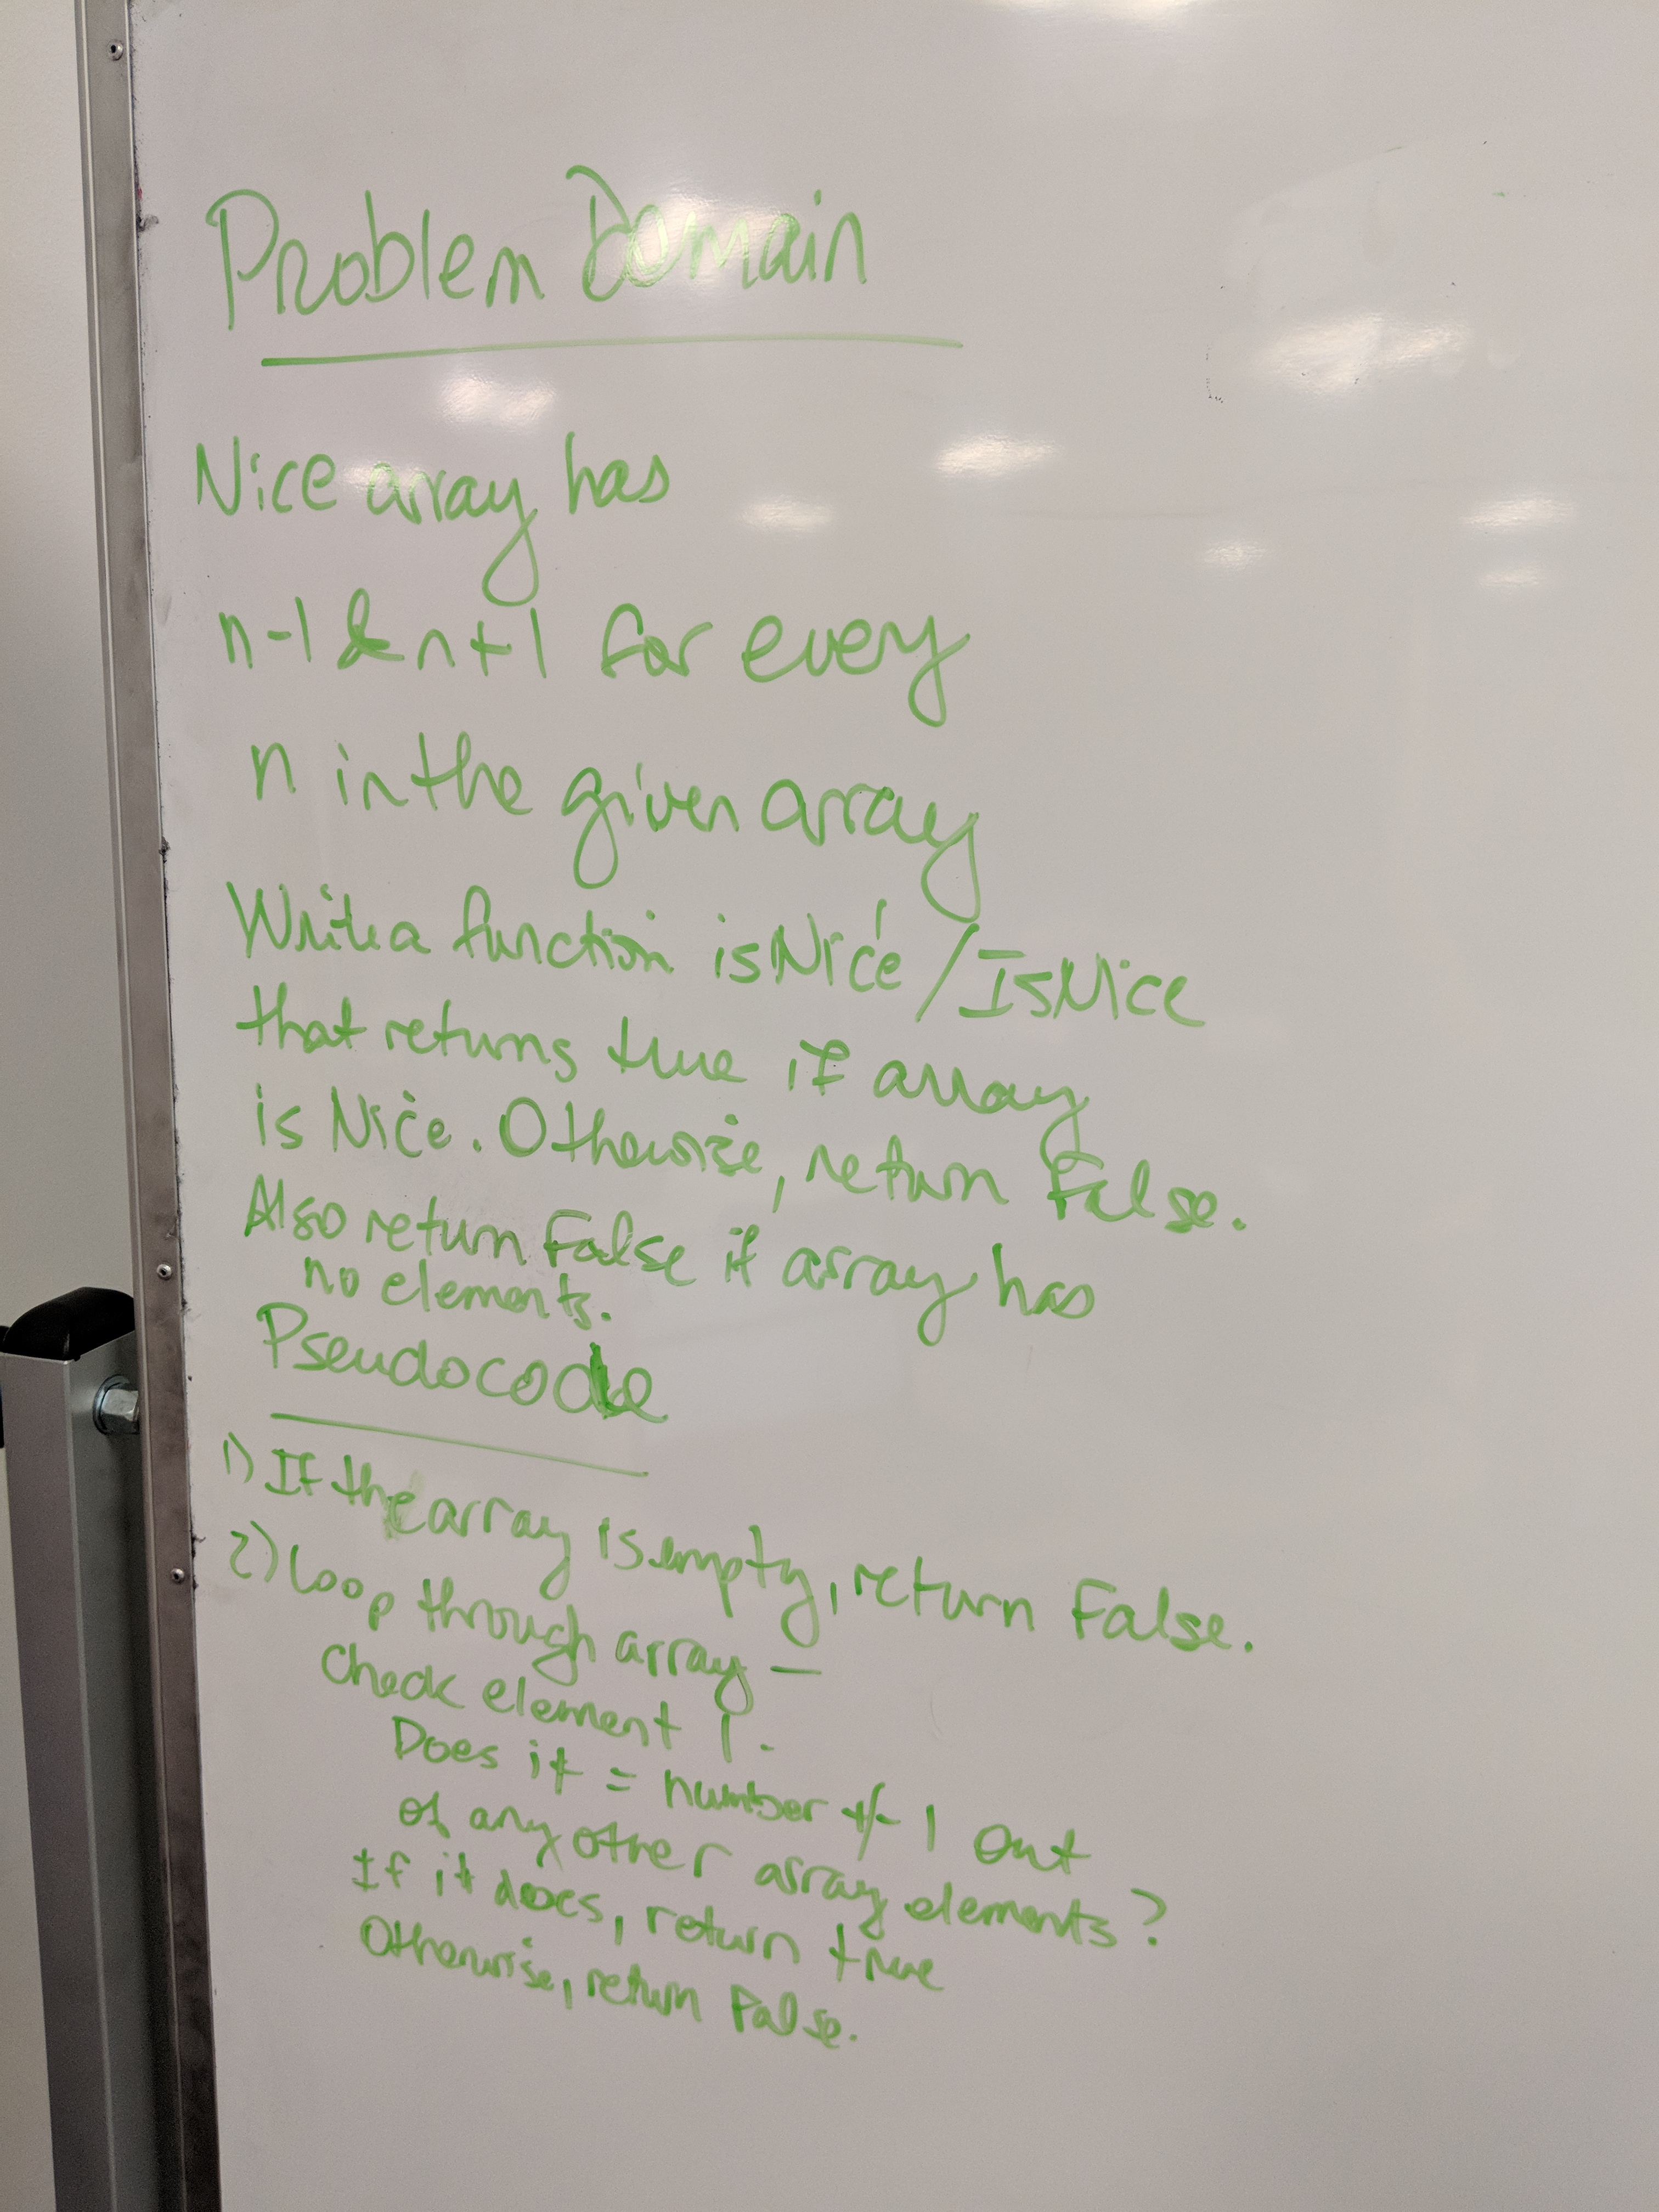 Problem Domain
Nice array has
n-1 & n+1 for every
n in the given array
Write a function isNice/IsNice
that returns true if array
is Nice. Otherwise, return False.
Also return False if array has
no elements.
Pseudocode
1) If the array is empty, return False.
2) Loop through array –
Check element 1.
Does it = number +/- 1 out
of any other array elements?
If it does, return true
Otherwise, return False.